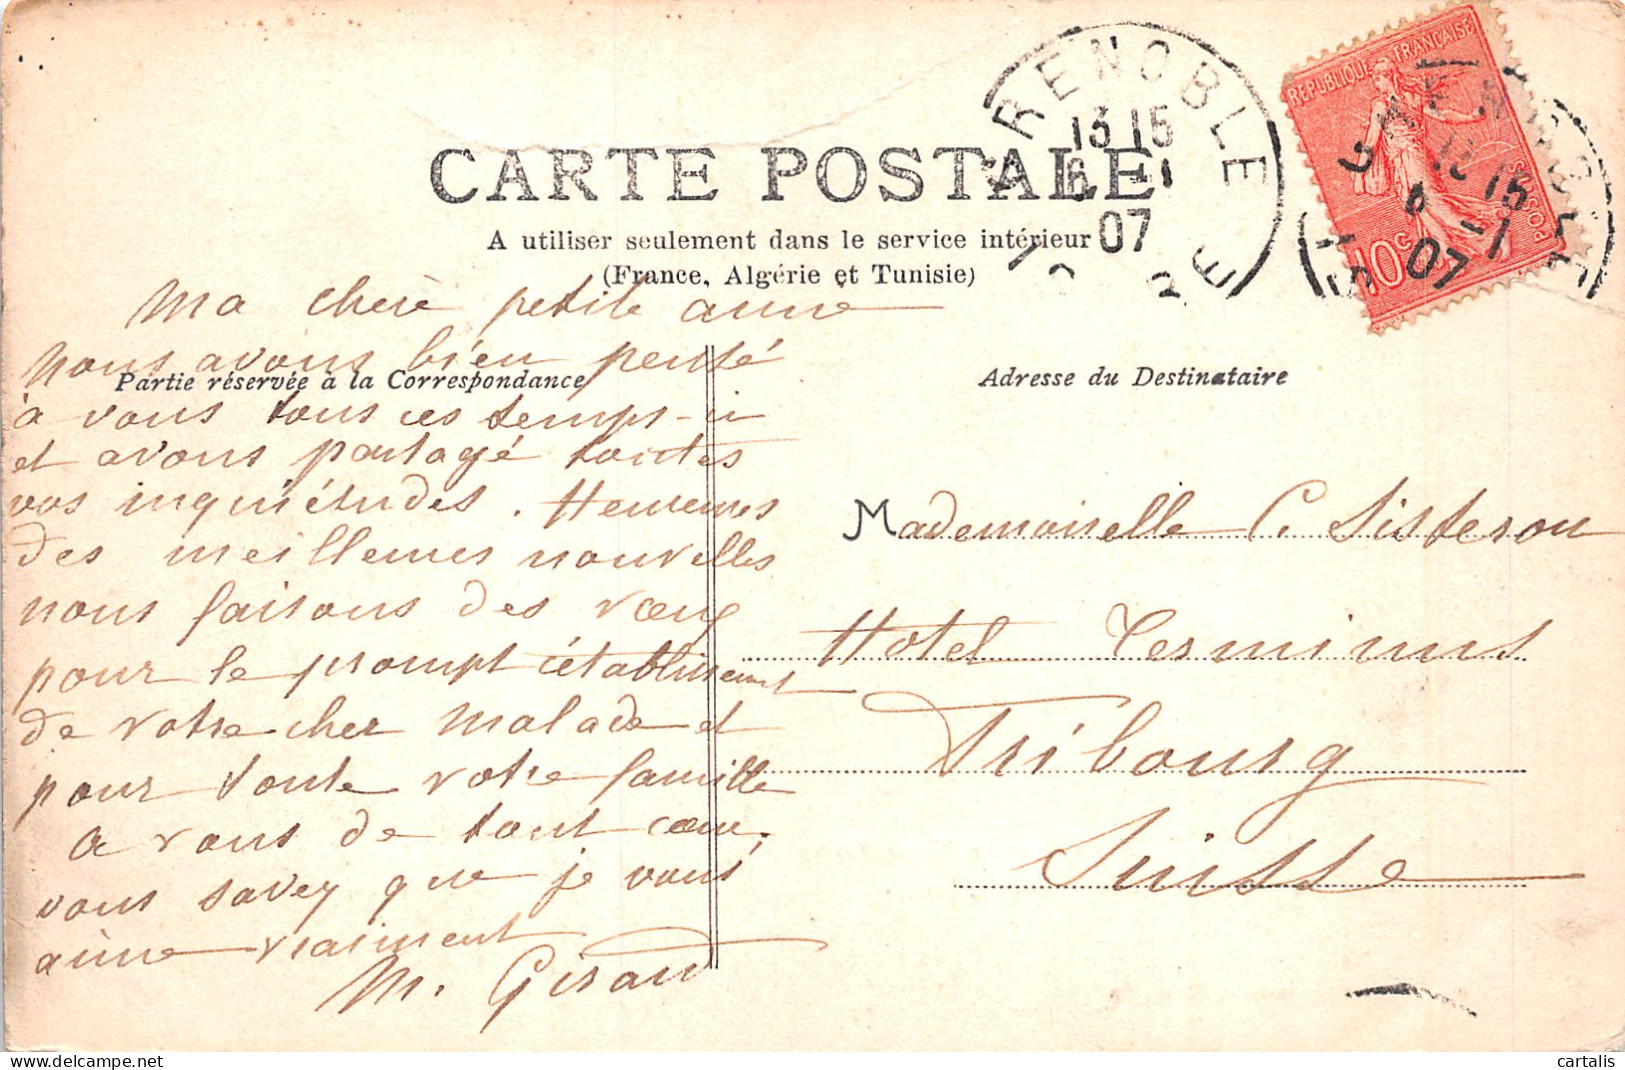 CARTE POSTALE
A utiliser seulement dans le service intérieur
(France, Algérie et Tunisie)
GRENOBLE
13 15
6 -1
07
ISERE
REPUBLIQUE FRANÇAISE
POSTES
10c
GRENOBLE
13 15
6 -1
07
ISERE
Partie réservée à la Correspondance
Adresse du Destinataire
Ma chere petite amie
nous avons bien pensé
à vous tous ces temps-ci
et avons partagé toutes
vos inquiétudes. Heureuses
des meilleures nouvelles
nous faisons des vœux
pour le prompt établissement
de votre cher malade et
pour toute votre famille
A vous de tout cœur,
vous savez que je vous
aime vraiment
M. Giraud
Mademoiselle C. Sisteron
Hotel Terminus
Fribourg
Suisse
cartalis